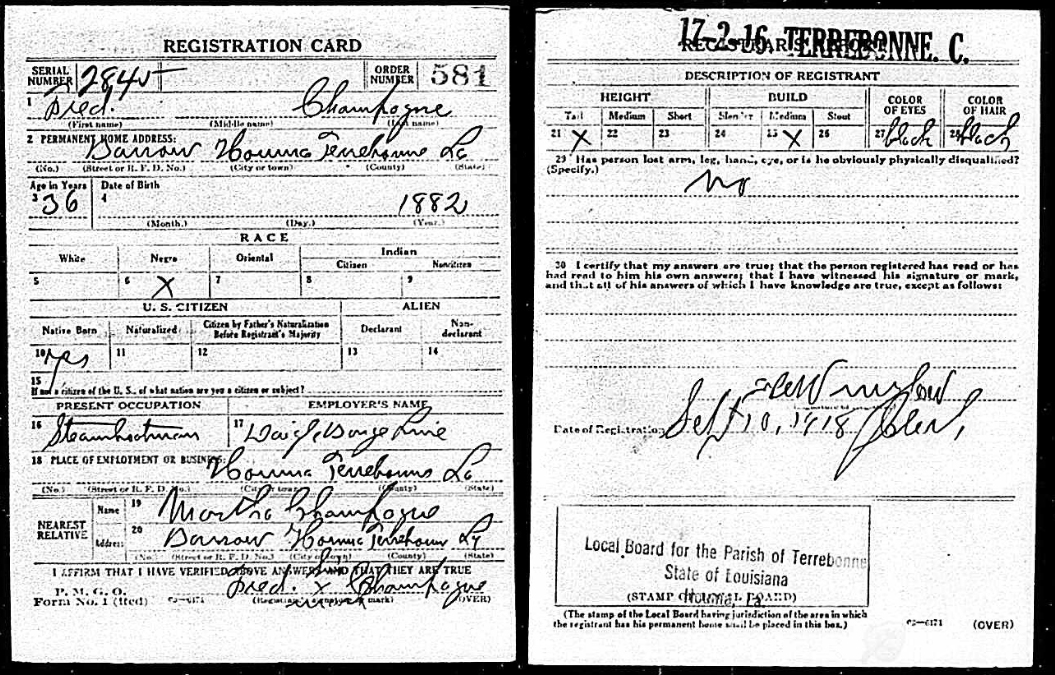 REGISTRATION CARD
SERIAL NUMBER 2845 ORDER NUMBER 581
1 Fred. Champagne
(First name) (Middle name) (Last name)
2 PERMANENT HOME ADDRESS:
Barrow Houma Terrebonne La
(No.) (Street or R. F. D. No.) (City or town) (County) (State)
Age in Years Date of Birth
3 36 4 1882
(Month.) (Day.) (Year.)
RACE
White Negro Oriental Indian
Citizen Noncitizen
5 6 X 7 8 9
U. S. CITIZEN ALIEN
Native Born Naturalized Citizen by Father's Naturalization Before Registrant's Majority Declarant Non-declarant
10 yes 11 12 13 14
15
If not a citizen of the U. S., of what nation are you a citizen or subject?
PRESENT OCCUPATION EMPLOYER'S NAME
16 Steamboatman 17 Barge Line
18 PLACE OF EMPLOYMENT OR BUSINESS:
Houma Terrebonne La
(No.) (Street or R. F. D. No.) (City or town) (County) (State)
NEAREST RELATIVE
Name 19 Martha Champagne
Address 20 Barrow Houma Terrebonne La
(No.) (Street or R. F. D. No.) (City or town) (County) (State)
I AFFIRM THAT I HAVE VERIFIED ABOVE ANSWERS AND THAT THEY ARE TRUE
P. M. G. O.
Form No. 1 (Red) 03—6171 Fred. X Champagne
(Registrant's signature or mark) (OVER)
17-2-16 TERREBONNE. C.
REGISTRAR'S REPORT
DESCRIPTION OF REGISTRANT
HEIGHT BUILD COLOR OF EYES COLOR OF HAIR
Tall Medium Short Slender Medium Stout
21 X 22 23 24 25 X 26 27 black 28 black
29 Has person lost arm, leg, hand, eye, or is he obviously physically disqualified?
(Specify.)
no
30 I certify that my answers are true; that the person registered has read or has
had read to him his own answers; that I have witnessed his signature or mark,
and that all of his answers of which I have knowledge are true, except as follows:
Date of Registration Sept 10, 1918
Local Board for the Parish of Terrebonne
State of Louisiana
(STAMP OF LOCAL BOARD)
Houma, La.
(The stamp of the Local Board having jurisdiction of the area in which
the registrant has his permanent home shall be placed in this box.)
03—6171 (OVER)